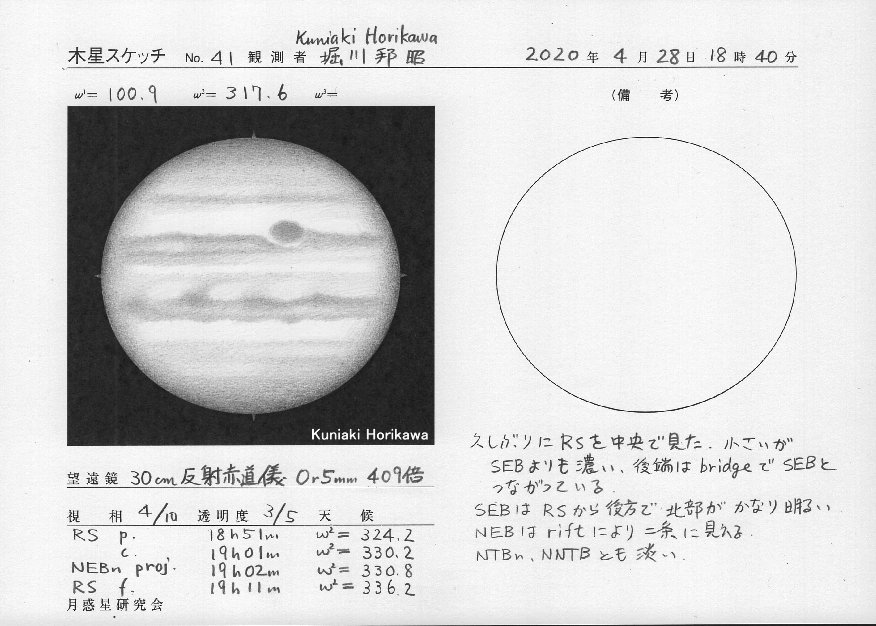 Kuniaki Horikawa
木星スケッチ No. 41 観測者 堀川邦昭 2020年 4月28日 18時40分
ω¹= 100.9 ω²= 317.6 ω³=
(備 考)
Kuniaki Horikawa
望遠鏡 30cm 反射赤道儀 Or5mm 409倍
視 相 4/10 透明度 3/5 天 候
RS p. 18h51m ω²= 324.2
c. 19h01m ω²= 330.2
NEBn proj. 19h02m ω²= 330.8
RS f. 19h11m ω²= 336.2
月惑星研究会
久しぶりに RSを中央で見た. 小さいが
SEBよりも濃い、後端は bridgeで SEBと
つながっている.
SEBは RSから後方で 北部が かなり明るい
NEBは riftにより 二条に見える.
NTBn、NNTBとも淡い.